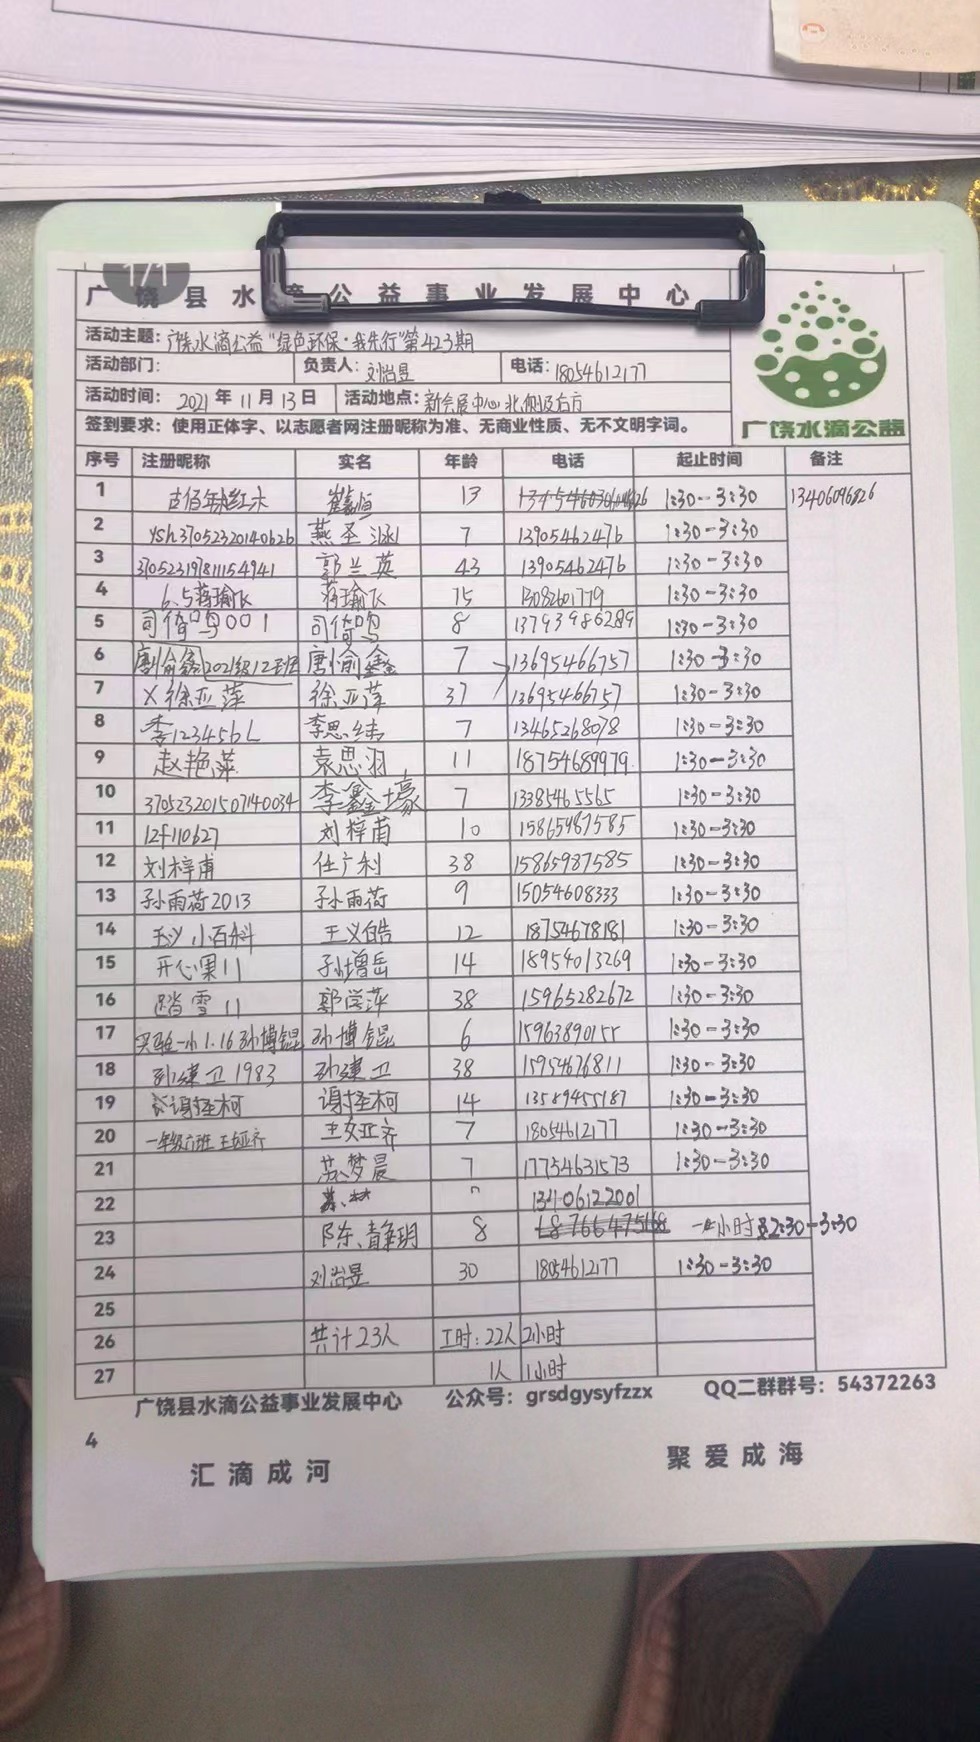 1/1
广饶县水滴公益事业发展中心
活动主题：广饶水滴公益"绿色环保·我先行"第423期
活动部门： 负责人：刘治昱 电话：18054612177
活动时间：2021年11月13日 活动地点：新会展中心北侧及右方
签到要求：使用正体字、以志愿者网注册昵称为准、无商业性质、无不文明字词。
广饶水滴公益
序号 注册昵称 实名 年龄 电话 起止时间 备注
1 13 1:30-3:30 13406096826
2 ysh37052320140626 燕圣 7 13905462476 1:30-3:30
3 370523197811154941 郭兰英 43 13905462476 1:30-3:30
4 6.5蒋瑜飞 蒋瑜飞 15 13082601779 1:30-3:30
5 司倚鸣001 司倚鸣 8 13793986289 1:30-3:30
6 唐愉鑫2021级12班 唐愉鑫 7 13695466757 1:30-3:30
7 X徐亚萍 徐亚萍 37 13695466757 1:30-3:30
8 李123456L 李思 7 13465268078 1:30-3:30
9 赵艳萍 袁思羽 11 18754689979 1:30-3:30
10 370523201507140034 李鑫壕 7 13385465565 1:30-3:30
11 12f110627 刘梓甫 10 15865987585 1:30-3:30
12 刘梓甫 任广利 38 15865987585 1:30-3:30
13 孙雨荷2013 孙雨荷 9 15054608333 1:30-3:30
14 小百科 王义皓 12 18754678181 1:30-3:30
15 开心果11 孙增岳 14 18954013269 1:30-3:30
16 踏雪11 郭学萍 38 15965282672 1:30-3:30
17 实验一小1.16孙博锟 孙博锟 6 15963890155 1:30-3:30
18 孙建卫1983 孙建卫 38 15954676811 1:30-3:30
19 谢择柯 谢择柯 14 13589455187 1:30-3:30
20 一年级六班 王姣齐 7 18054612177 1:30-3:30
21 苏梦晨 7 17754631573 1:30-3:30
22 13406122001
23 陈青玥 8 18766475168 一小时 2:30-3:30
24 刘治昱 30 18054612177 1:30-3:30
25
26 共计23人 工时：22人 2小时
27 1人 1小时
广饶县水滴公益事业发展中心 公众号：grsdgysyfzzx QQ二群群号：54372263
4
汇滴成河 聚爱成海